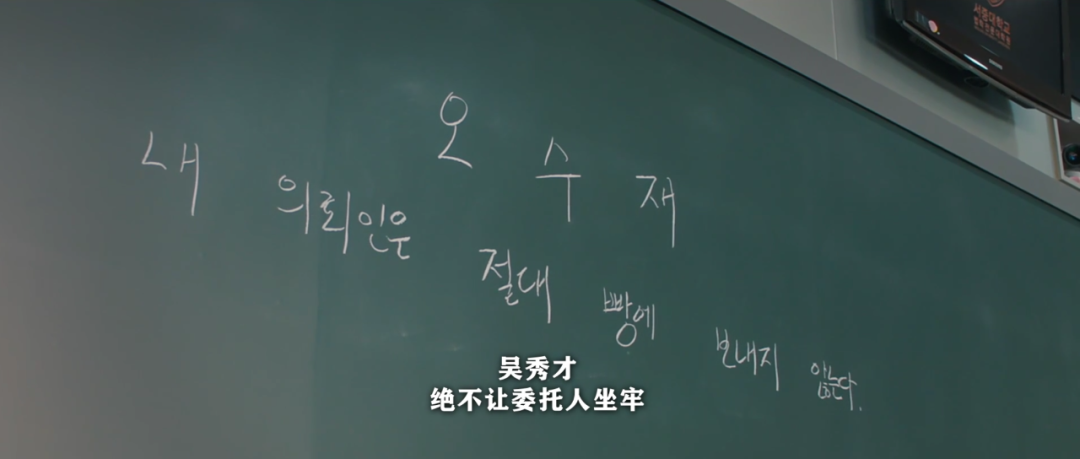 서중대학교
오수재
내 의뢰인은 절대 빵에 보내지 않는다.
吴秀才
绝不让委托人坐牢